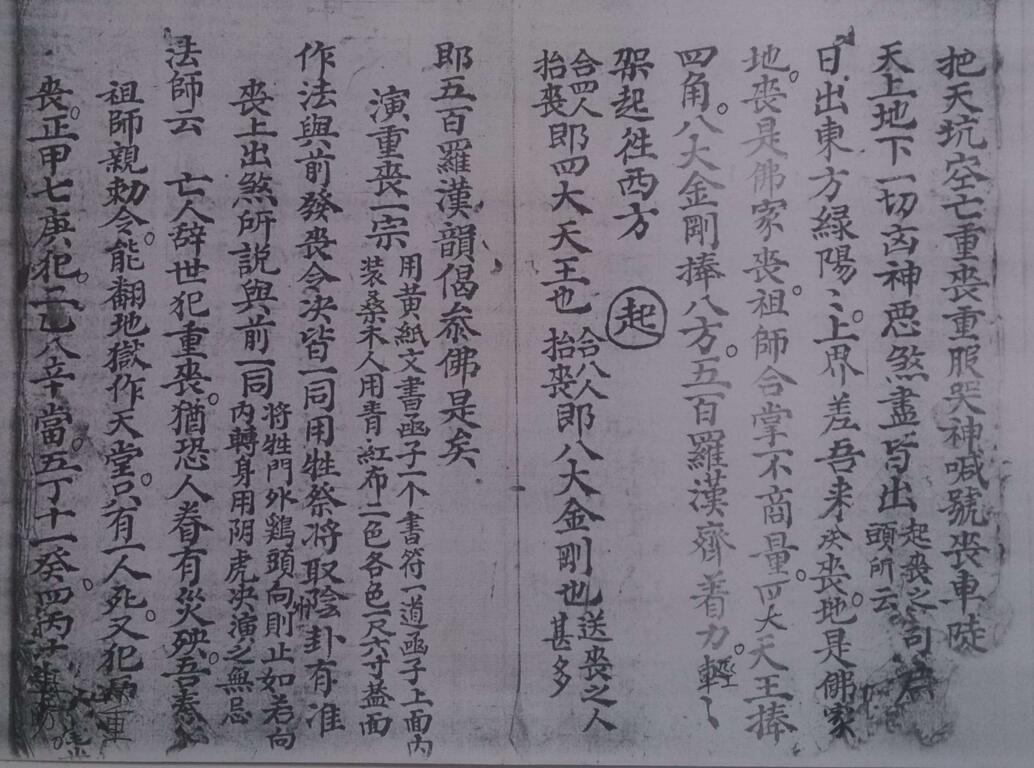 把天坑空亡重喪重服哭神喊號喪車陡
天上地下一切凶神惡煞盡皆出 起喪之
頭所云
日出東方綠陽〻上界差吾来发喪地是佛家
地喪是佛家喪祖師合掌不商量四大天王捧
四角八大金剛捧八方五百羅漢齊着力輕〻
架起徃西方 起
合四人
抬喪
即四大天王也
合八人
抬喪
即八大金剛也
送喪之人
甚多
即五百羅漢韻偈叅佛是矣
演重喪一宗
用黄紙文書函子一个書符一道函子上面内
装桑木人用青紅布二色各色一尺六寸盖面
作法與前發喪令决皆一同用牲祭將取陰卦有准
喪上出煞所説與前一同
將牲門外鷄頭向則止如若向
内轉身用阴虎决演之無忌
法師云 亡人辞世犯重喪猶恐人眷有災殃吾奏
祖師親勅令能翻地獄作天堂只有一人死又犯
喪正甲七庚犯二乙八辛當五丁十一癸四丙